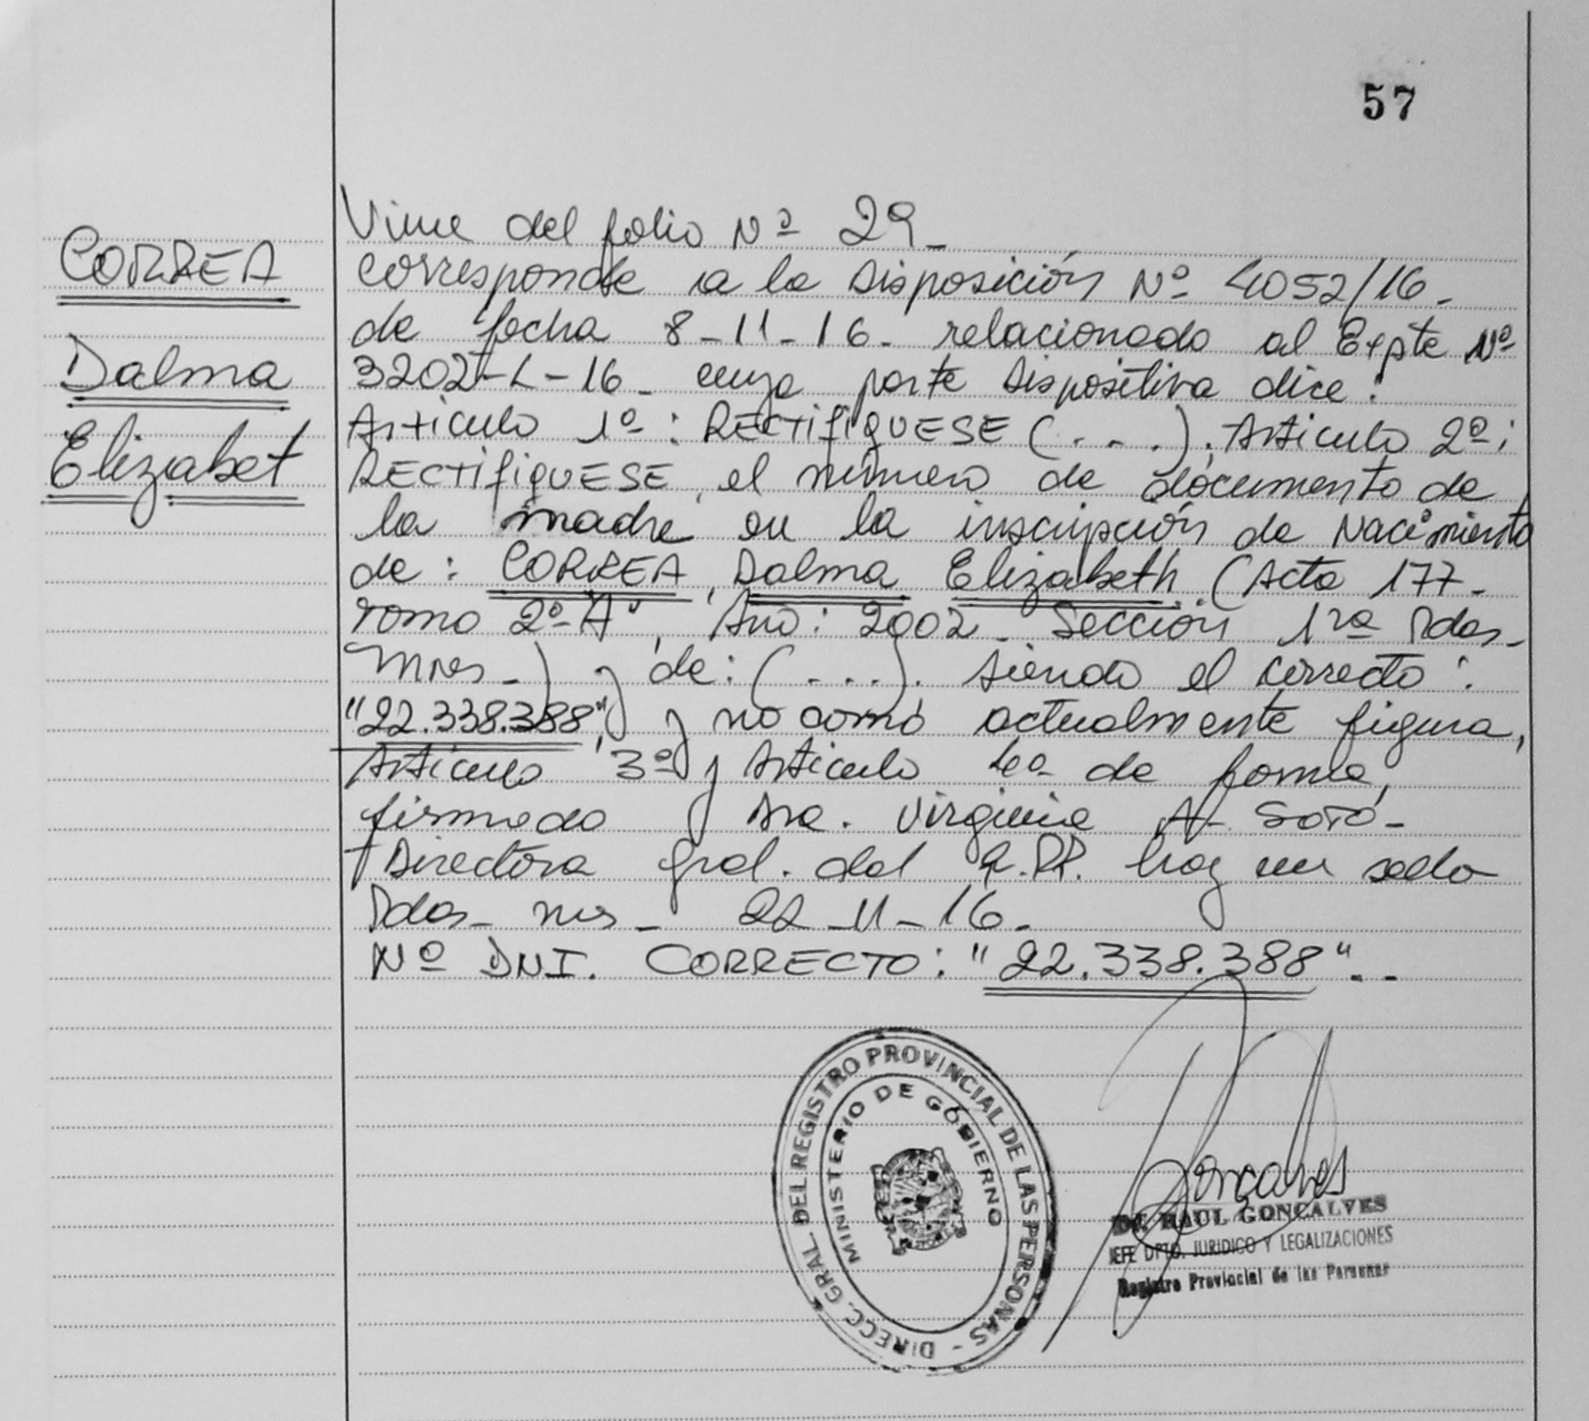 57
CORREA
Dalma
Elizabet
Viene del folio Nº 29_
corresponde a la Disposición Nº 4052/16_
de fecha 8-11-16_ relacionado al Expte Nº
3202-L-16_ cuya parte Dispositiva dice:
Articulo 1º: RECTIFIQUESE (....). Articulo 2º:
RECTIFIQUESE, el número de documento de
la madre en la inscripción de Nacimiento
de: CORREA, Dalma Elizabeth (Acta 177-
Tomo 2º"A", Año: 2002_ Sección 1ra Pdas_
Mnes_) y de: (....). siendo el correcto:
"22.338.388", y no como actualmente figura,
Articulo 3º y Articulo 4º de forma,
firmado Dra. Virginia A. SOTO-
Directora Gral. del R.PP. hay un sello
Pdas_ mns_ 22-11-16_
Nº DNI. CORRECTO: "22.338.388"._
DIRECC. GRAL. DEL REGISTRO PROVINCIAL DE LAS PERSONAS -
MINISTERIO DE GOBIERNO
Goncalves
Dr. RAUL GONCALVES
JEFE DPTO. JURIDICO Y LEGALIZACIONES
Registro Provincial de las Personas